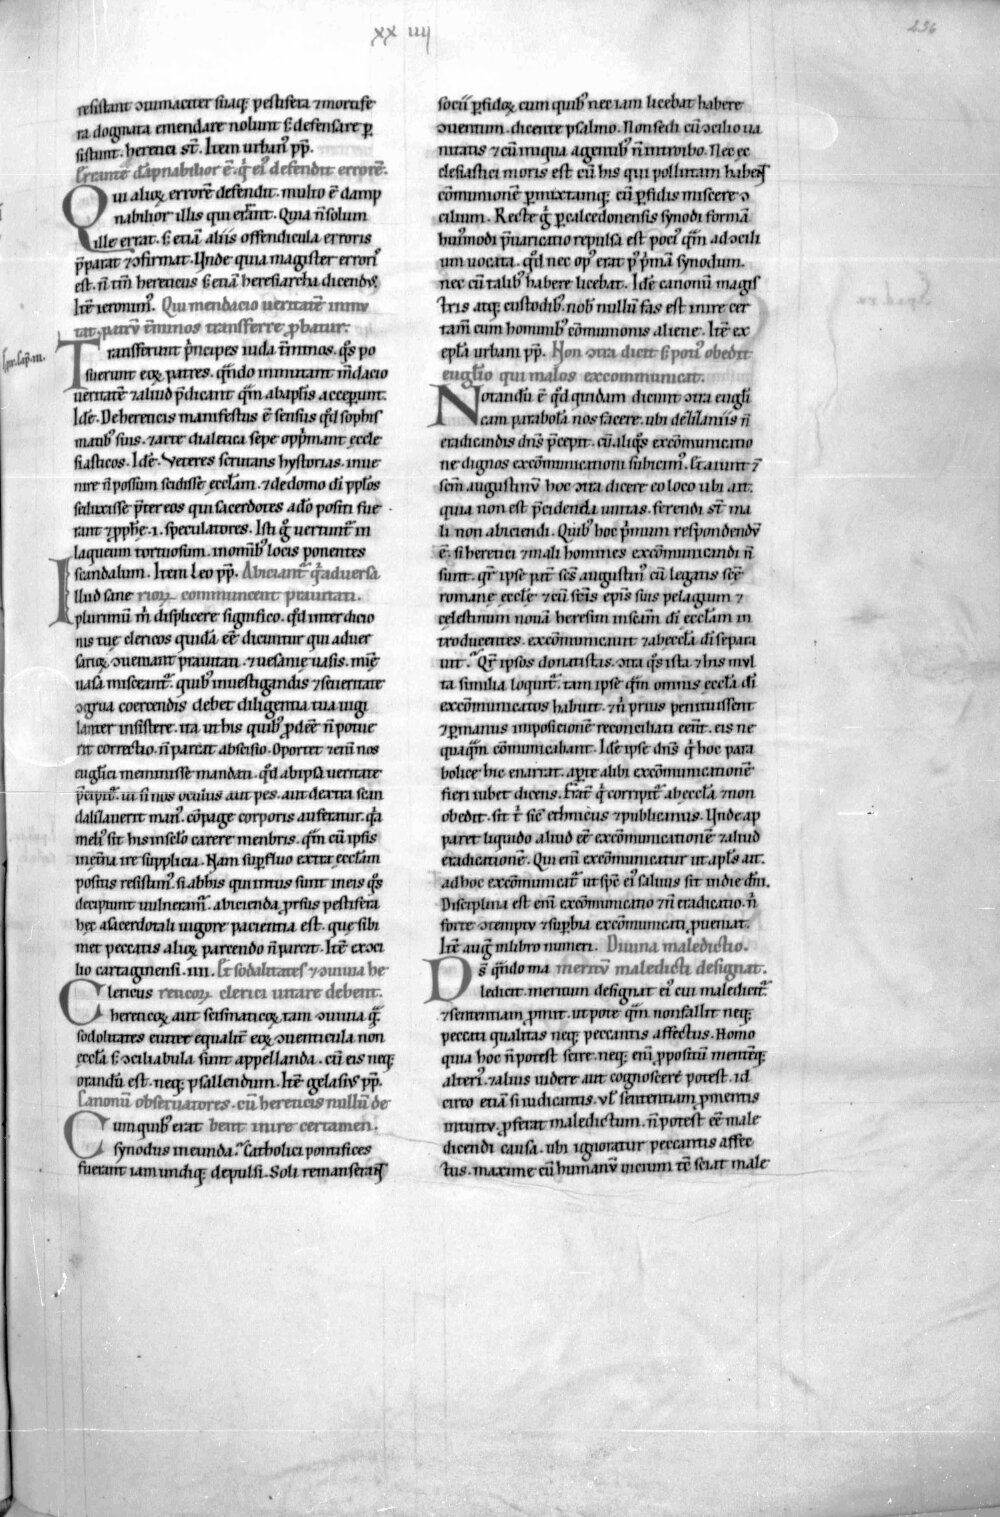 xx iiii
236
resistant ↄtumaciter suaq; pestifera ⁊mortife
ra dogmata emendare nolunt s; defensare p̱
sistunt. heretici st̄. Item urban᷒ pp̄.
Grauit᷒ dāpnabilior ē. q̇ ei᷒ defendit errorē.
Qui alioꝝ errorē defendit. multo ē damp
nabilior illis qui errant. Quia n̄ solum
ille errat. s; etiā aliis offendicula erroris
p̄parat ⁊ↄfirmat. Unde quia magister erroris
est. n̄ tm̄ hereticus s; etiā heresiarcha dicendus.
Itē ieronim᷒. Qui mendacio ueritatē immu
tat. patrū t̄minos transferre ꝓbatur.
Transferunt p̄ncipes iuda t̄minos. q̄s po
suerunt eoꝝ patres. q̄ndo immutant m̄dacio
ueritatē ⁊aliud p̄dicant q̄m abap̄lis acceperunt.
Idē. De hereticis manifestus ē sensus qd̄ sophis
matib᷒ suis. ⁊arte dialetica sepe opp̄mant eccle
siasticos. Idē. Veteres scrutans hystorias. inue
nire n̄ possum scidisse eccl̄am. ⁊de domo dī pp̄los
seduxisse p̄ter eos qui sacerdotes adō positi fue
rant ⁊ꝓph̄e .i. speculatores. Isti ḡ uertunt᷒ in
laqueum tortuosum. inomnib᷒ locis ponentes
scandalum. Item Leo pp̄. Abiciant᷒ q̄ aduersa
Illud sane rioꝝ communcent prauitati.
plurimū m̄ displicere significo. qd̄ inter dicio
nis tue clericos quidā eē dicuntur qui aduer
sarioꝝ ↄueniant prauitati. ⁊uesanie uasis. mīe
uasa misceant᷒. quib᷒ inuestigandis ⁊seueritate
ↄgrua coercendis debet diligentia tua uigi
lanter insistere. ita ut his quib᷒ ꝓdeē n̄ potue
rit correctio. n̄ parcat abscisio. Oportet ⁊enī nos
eugl̄ici meminisse mandati. qd̄ abipsa ueritate
p̄cipit᷒. ut si nos oculus aut pes. aut dextra scan
dalizauerit man᷒. cōpage corporis auferatur. q̄a
meli᷒ sit his inseclo carere menbris. q̄m cū ipsis
inet̄na ire supplicia. Nam sup̱fluo extra eccl̄am
positis resistim᷒. si abhis qui intus sunt ineis q̄s
decipiunt uulneram᷒. abicienda ꝓrsus pestifera
hec asacerdotali uigore pacientia est. que sibi
met peccatis alioꝝ parcendo n̄ parcit. Itē exↄci
lio cartaginensi .iiii. Et sodalitates ⁊ↄuiuia he
Clericus reticoꝝ clerici uitare debent.
hereticoꝝ aut scismaticoꝝ tam ↄuiuia q̄m
sodolitates euitet equalit̄. eoꝝ ↄuenticula non
eccl̄ia s; ↄciliabula sunt appellanda. cū eis neq;
orandū est. neq; psallendum. Itē gelasius pp̄.
Canonū obseruatores. cū hereticis nullū de
Cum quib᷒ erat bent inire certamen.
synodus ineunda. Catholici pontifices
fuerant iam undiq; depulsi. Soli remanserant
socii p̱fidoꝝ cum quib᷒ nec iam licebat habere
ↄuentum. dicente psalmo. Non sedi cū ↄcilio ua
nitatis ⁊cū iniqua agentib᷒ n̄ introibo. Nec ec
clesiastici moris est cū his qui pollutam habent
cōmunionē p̱mixtamq; cū p̱fidis miscere ↄ
cilium. Recte ḡ p̱ calcedonensis synodi formā
hui᷒modi p̄uaricatio repulsa est poci᷒ q̄m ad ↄcili
um uocata. qd̄ nec op᷒ erat p᷒ p̄mā synodum.
nec cū talib᷒ habere licebat. Idē canonū magis
tris atq; custodib᷒. nob᷒ nullū fas est inire cer
tam̄ cum hominib᷒ cōmunionis aliene. Itē ex
epl̄a urbani pp̄. Non ↄtra dicit s; poti᷒ obedit
eugl̄io qui malos excommunicat.
Notandū ē qd̄ quidam dicunt ↄtra eugl̄i
cam parabolā nos facere. ubi de lilaniis n̄
eradicandis dn̄s p̄cepit. cū aliq̄s excōmunicatio
ne dignos excōmunicationi subicim᷒. Et aiunt ⁊
sc̄m augustinū hoc ↄtra dicere eo loco ubi ait.
quia non est p̄cidenda unitas. ferendi st̄ ma
li non abiciendi. Quib᷒ hoc p̄mum respondendū
ē. si heretici ⁊mali homines excōmunicandi n̄
sunt. q̄r ipse pat̄ sc̄s augustin᷒ cū legatis sc̄e
romane eccl̄e. ⁊cū sc̄is ep̄is suis pelagium ⁊
celestinum nouā heresim insc̄am dī eccl̄am in
troducentes. excōmunicauit ⁊abeccl̄a dī separa
uit. Q̄r ipsos donatistas. ↄtra q̄s ista ⁊his mul
ta similia loquit᷒. tam ipse q̄m omnis eccl̄a dī
excōmunicatos habuit. ⁊n̄ prius penituissent
⁊p̱manus impositionē reconciliati eēnt. eis ne
quaq̄m cōmunicabant. Idē ipse dn̄s q̇ hoc para
bolice hic enarrat. apte alibi excōmunicationē
fieri iubet dicens. Frat̄ q̇ corripit᷒ abeccl̄a ⁊non
obedit. sit t̄ sic̄ ethnicus ⁊publicanus. Unde ap
paret liquido aliud eē excōmunicationē ⁊aliud
eradicationē. Qui enī excōmunicatur ut apl̄s ait.
ad hoc excōmunicat̄ ut sp̄c ei᷒ saluus sit indie dn̄i.
Disciplina est enī excōmunicatio ⁊n̄ eradicatio. n̄
forte ↄtemptu ⁊sup̱bia excōmunicati ꝓueniat.
Itē aug᷒ in libro numeri. Diuina maledictio.
Ds̄ q̄ndo ma meritū maledicti designat.
ledicit. meritum designat ei᷒ cui maledicit᷒.
⁊sententiam ꝓmit. utpote q̄m non fallit neq;
peccati qualitas neq; peccantis affectus. Homo
quia hoc n̄ potest scire. neq; enī ꝓpositū mentēq;
alteri᷒. ⁊alius uidere aut cognoscere potest. id
circo etiā si iudicantis. ul̄ sententiam ꝓmentis
intuitu. ꝓferat maledictum. n̄ potest eē male
dicendi causa. ubi ignoratur peccantis affec
tus. maxime cū humanū uicium t̄e sciat male